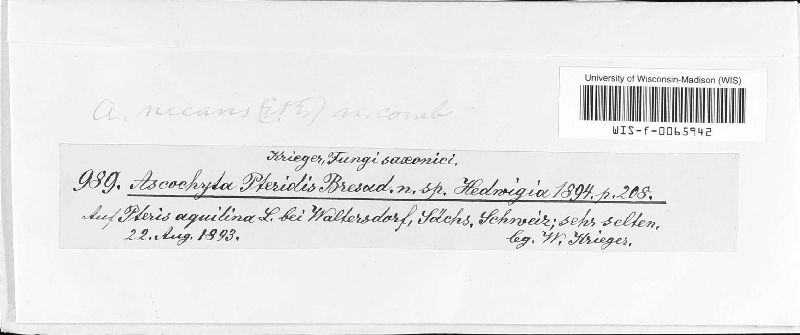 University of Wisconsin-Madison (WIS)
WIS-f-0065942
A. necans (E.&E.) n. comb
Krieger, Fungi saxonici.
989. Ascochyta Pteridis Bresad. n. sp. Hedwigia 1894. p. 208.
Auf Pteris aquilina L. bei Waltersdorf, Sächs. Schweiz; sehr selten.
22. Aug. 1893. lg. W. Krieger.